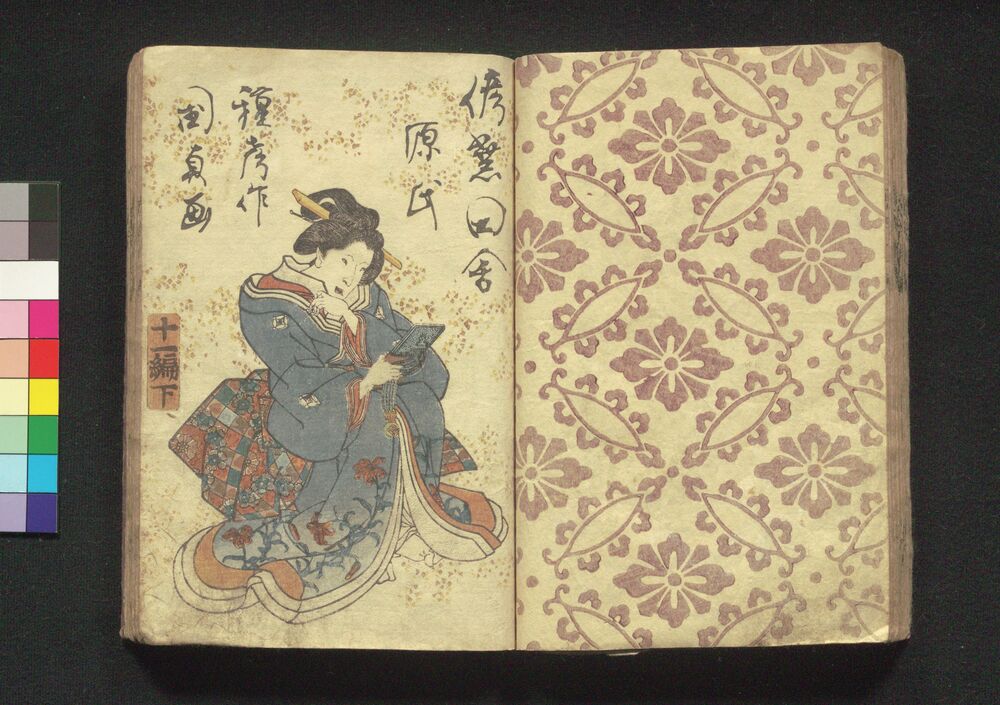 偐紫田舎
源氏
種彦作
国貞画
十一編下